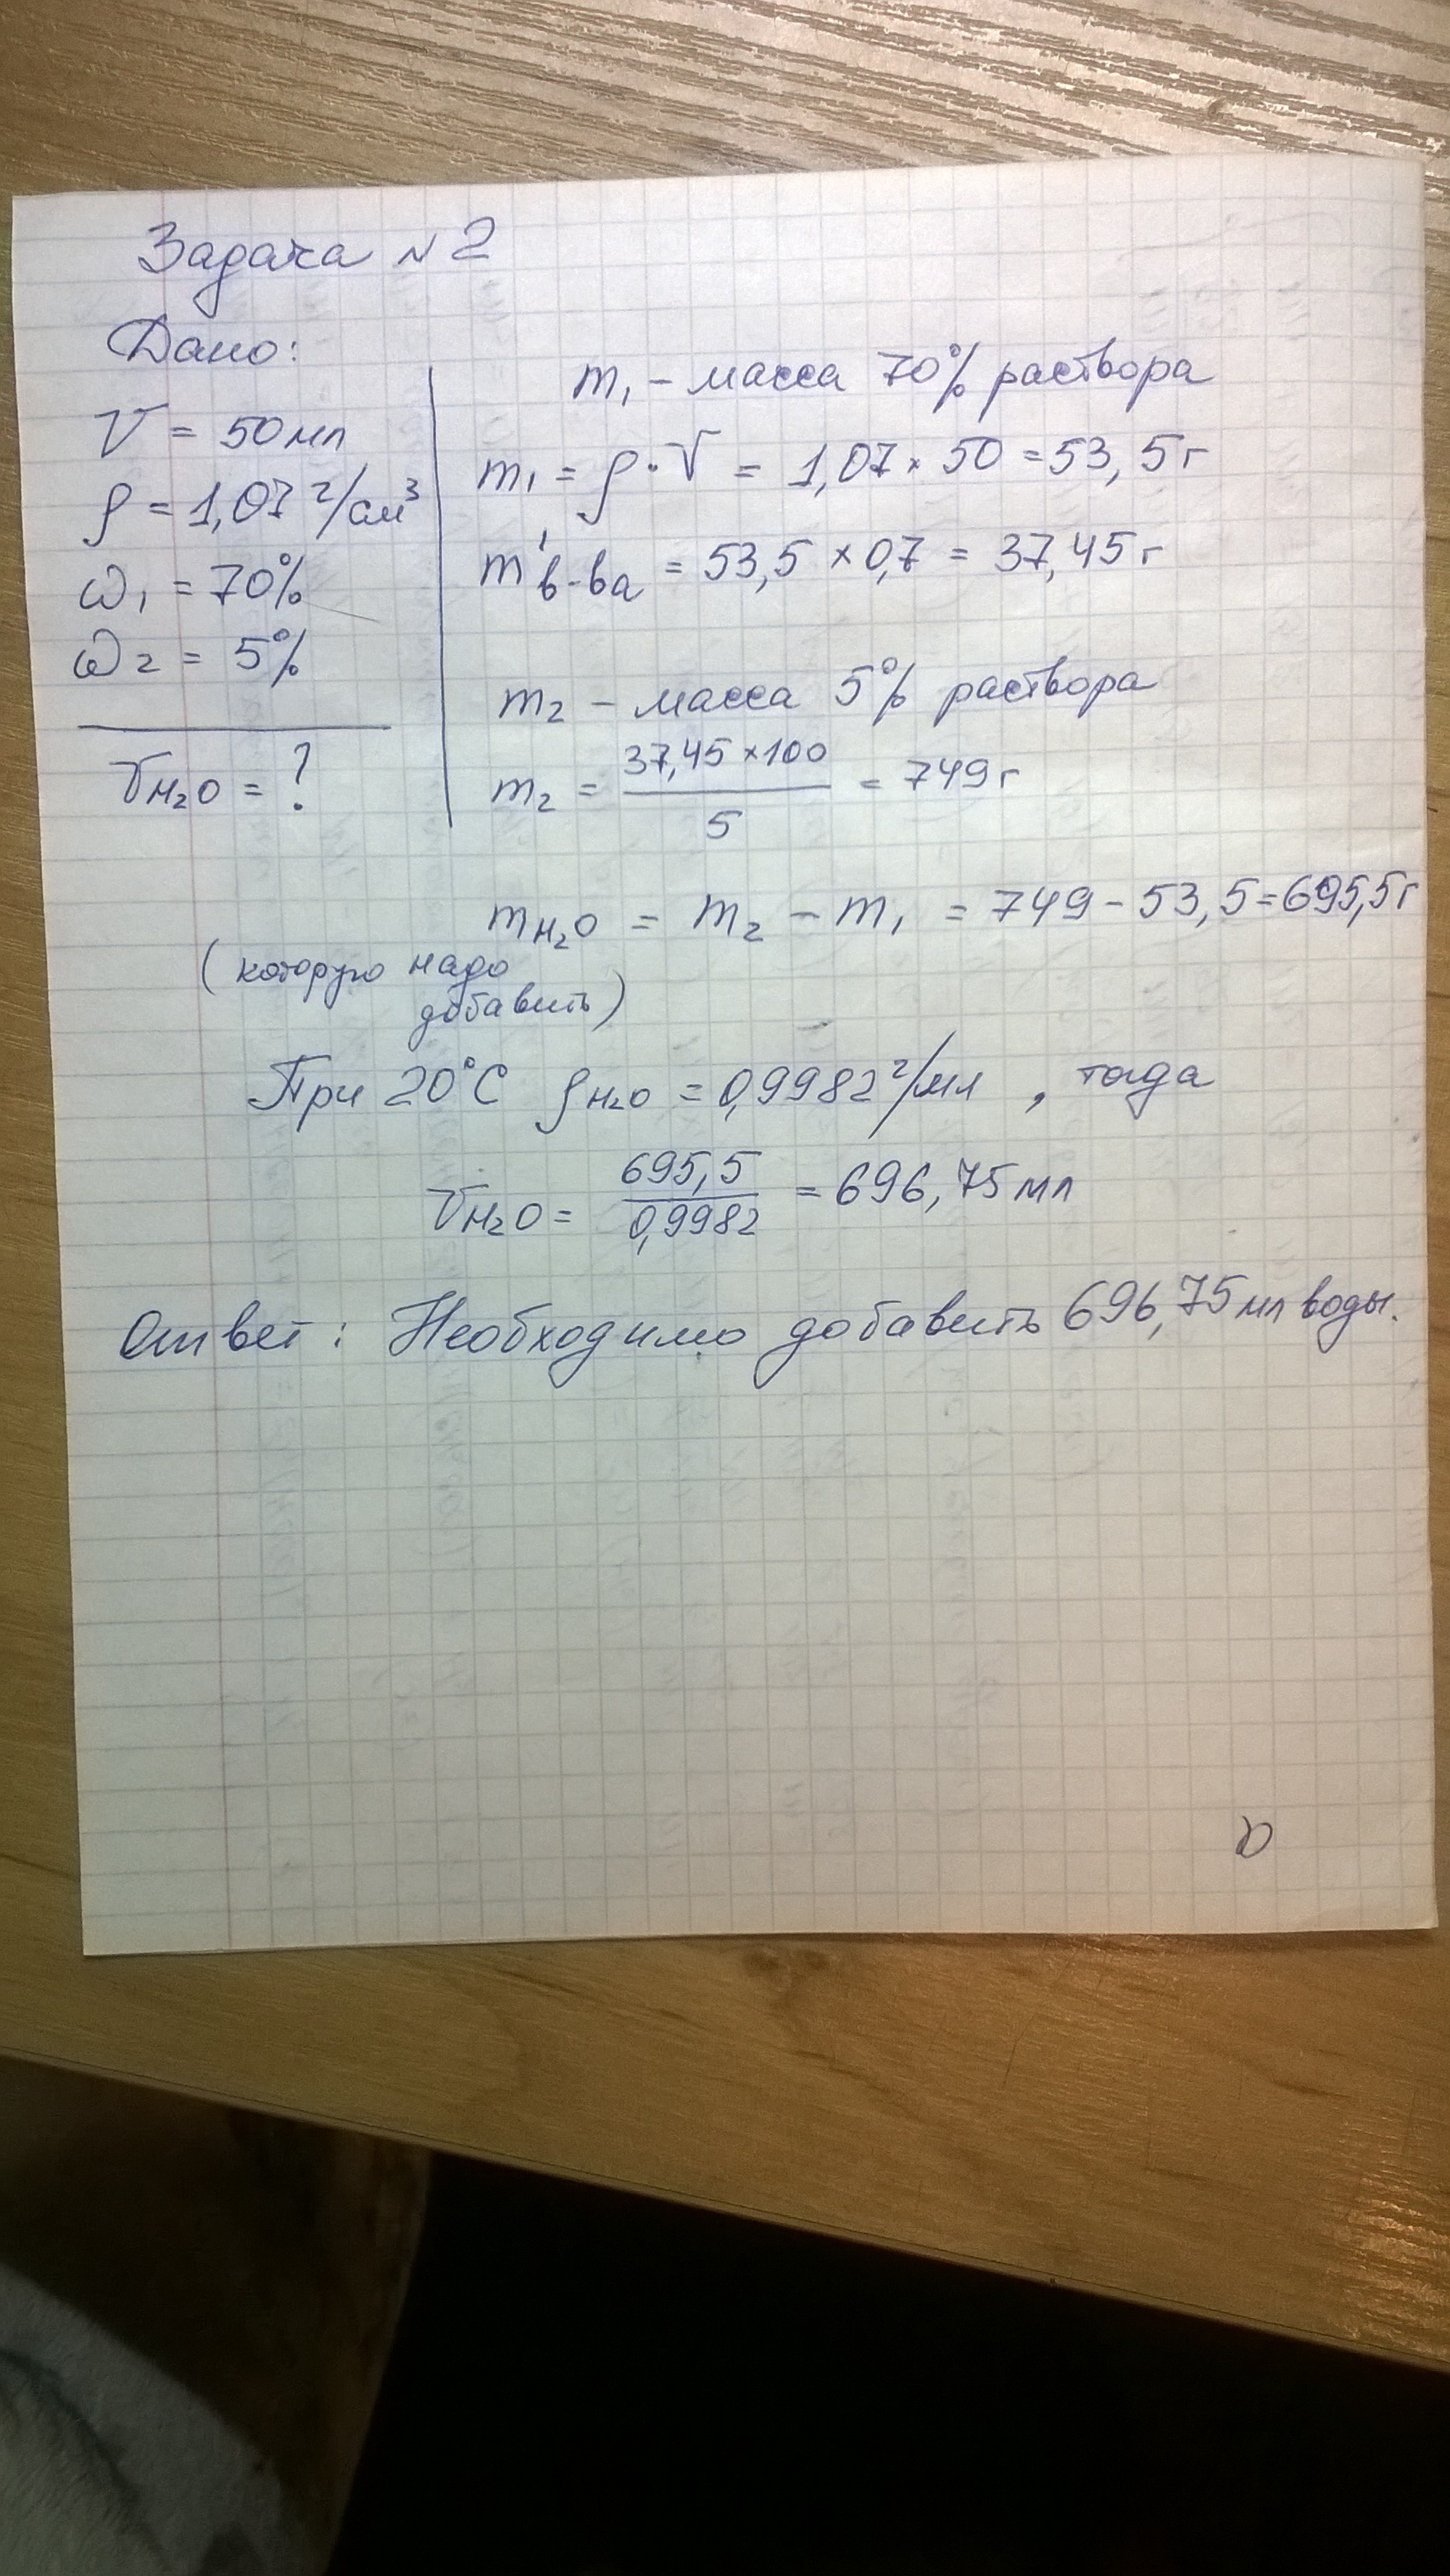 Задача № 2
Дано:
V = 50 мл
ρ = 1,07 г/см³
ω₁ = 70%
ω₂ = 5%
V H₂O = ?
m₁ – масса 70% раствора
m₁ = ρ · V = 1,07 × 50 = 53,5 г
m' в-ва = 53,5 × 0,7 = 37,45 г
m₂ – масса 5% раствора
m₂ = 37,45 × 100 / 5 = 749 г
m H₂O = m₂ – m₁ = 749 – 53,5 = 695,5 г
(которую надо
добавить)
При 20°C ρ H₂O = 0,9982 г/мл , тогда
V H₂O = 695,5 / 0,9982 = 696,75 мл
Ответ: Необходимо добавить 696,75 мл воды.